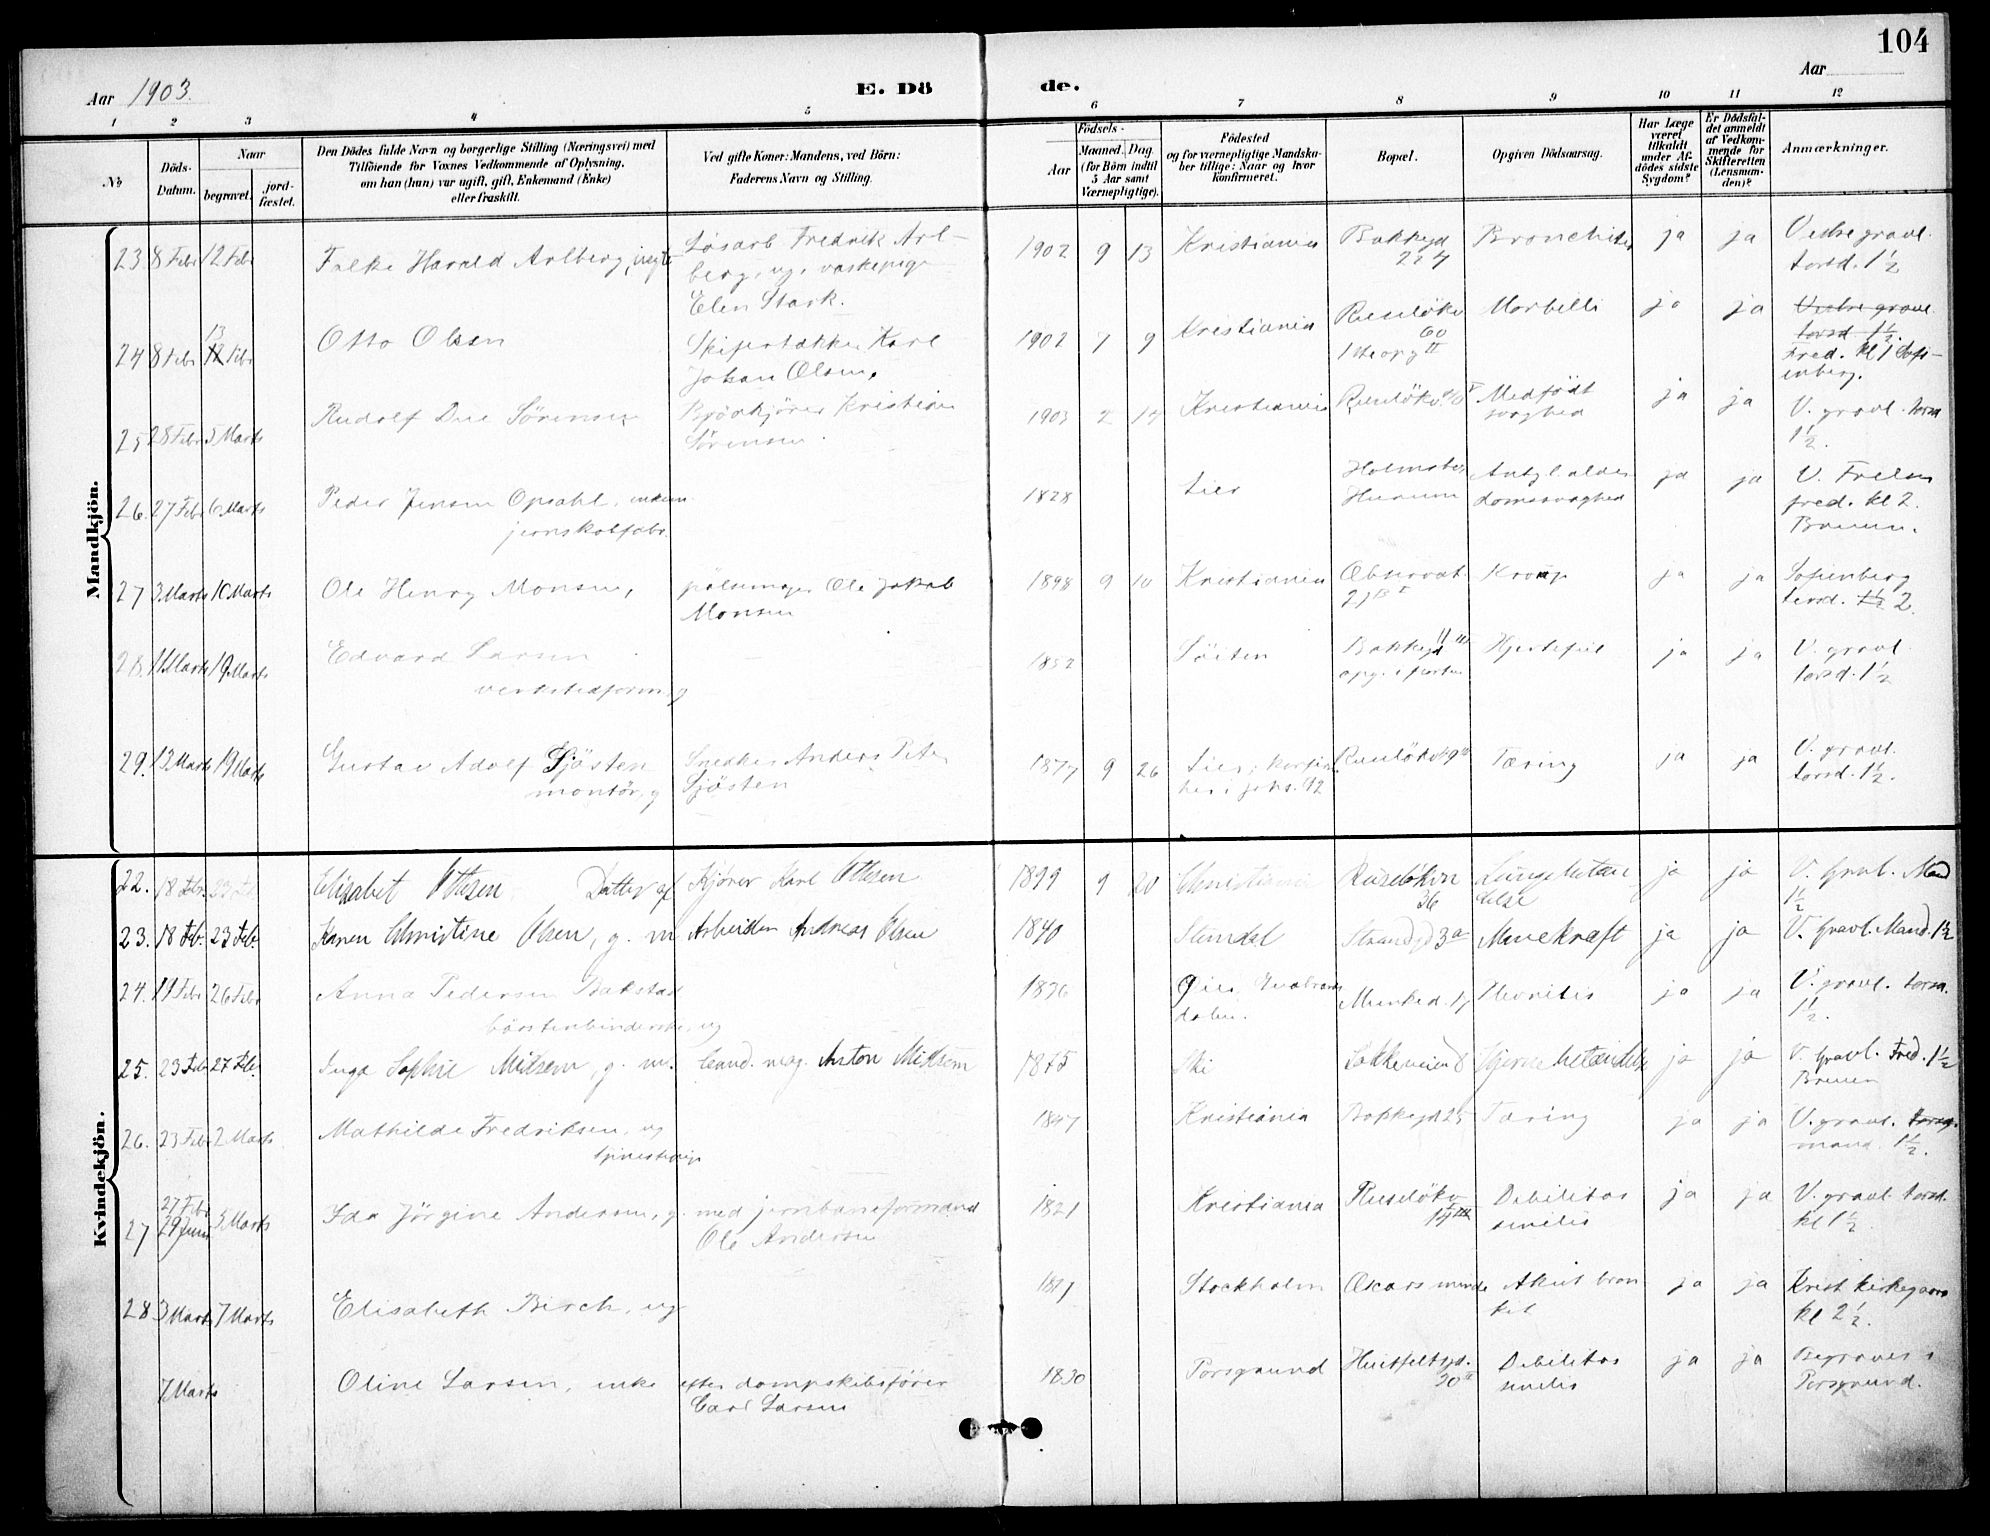 104
Aar 1903.
E. Dö
de.
Aar
1 2 3 4 5 6 7 8 9 10 11 12
No
Döds-Datum.
Naar
begravet.
jord-fæstet.
Den Dödes fulde Navn og borgerlige Stilling (Næringsvei) med
Tilföiende for Voxnes Vedkommende af Oplysning,
om han (hun) var ugift, gift, Enkemand (Enke)
eller fraskilt.
Ved gifte Koner: Mandens, ved Börn:
Faderens Navn og Stilling.
Födsels-
Aar
Maaned. Dag.
(for Börn indtil
5 Aar samt
Værnepligtige).
Födested
og for værnepligtige Mandska-
ber tillige: Naar og hvor
konfirmeret.
Bopæl.
Opgiven Dödsaarsag.
Har Læge
været
tilkaldt
under Af-
dödes sidste
Sygdom?
Er Dödsfal-
det anmeldt
af Vedkom-
mende for
Skifteretten
(Lensman-
den)?
Anmærkninger.
Mandkjön.
23. 8 Febr 12 Febr Falke Harald Arlberg, Løsarb Fredrik Arl-
berg, ug, vaskepige
Elen Stark.
1902 9 13 Kristiania Bakkegd Bronchitis ja ja Vestre gravl.
torsd. 1½
24 8 Febr 13 Febr Otto Olsen Karl
Johan Olsen.
1902 7 9 Kristiania Ruseløkv 60 Morbilli ja ja Vestre gravl.
torsd 1½.
Fred. kl 1 Sofi-
enberg.
25 28 Febr 5 Marts Rudolf Due Sørensen Brødkjører Kristian
Sørensen
1903 2 14 Kristiania Ruseløkv Medfødt
svaghed ja ja V. gravl. torsd
1½.
26. 27 Febr 6 Marts Peder Jensen Opsahl, enkem.
jernskabfabr.
1828 Lier Holmsbo,
Hurum
domssvaghed ja ja V. Frelsers
fred. kl 2.
Bruun.
27 3 Marts 10 Marts Ole Henry Monsen, pølsemager Ole Jakob
Monsen
1898 9 10 Kristiania Observat.
21 B I Krup ja ja Sofienberg
tirsd. 1½ 2.
28. 19 Marts Edvard Larsen
verkstedform, g
1852 Løiten Bakkegd 11 III
Hjertefeil ja ja V. gravl.
torsd. 1½
29. 12 Marts 19 Marts Gustav Adolf Sjösten
montör, g
Snedker Anders Peter
Sjösten
1877 9 26 Lier, konfir
Ruseløkv Tæring ja ja V. gravl.
torsd. 1½.
Kvindekjön.
22. 18 Febr. 23 Feb Elisabet Ottesen. Datter af Kjører Karl Ottesen
1899 9 20 Christiania Ruseløkvn
36 Lungebetæn
delse ja ja V. Gravl. Mand
1½
23. 18 Feb. 23 Feb. Karen Christine Olsen, g. m Arbeider Andreas Olsen
1840 Strandgd 3a Marekræft ja ja V. Gravl. Mand. 1½
24. 19 Febr 26 Febr Anna Pedersen Bakstad
børstenbinderske, ug
1836 Munked. 17 Pleuritis ja ja V. gravl. torsd.
1½.
25. 23 Feb 27 Feb. Inga Sophie g. m. Cand. mag. Anton
1875 Ski Løkkeveien 8 Hjernebetændelse ja ja V. Gravl. Fred. 1½
Bruun
26. 23 Febr 2 Marts Mathilde Fredriksen, ug
1847 Kristiania Bakkegd 25 Tæring ja ja V. gravl. torsd.
mand. 1½.
27 27 Febr
29 Juni 5 Marts Ida Jørgine Andersen, g. med jernbaneformand
Ole Andersen
1821 Kristiania Ruseløkv
Debilitas
senilis ja ja V. gravl. torsd.
kl 1½.
28 3 Marts 7 Marts Elisabeth Birch, ug
Stockholm Oscars Akut bron
kit ja ja Krist kirkegaard
kl 2½.
7 Marts Oline Larsen, enke efter dampskibsfører
Carl Larsen
1830 Porsgrund Huitfeltsgd.
30 II Debilitas
senilis ja ja Begraves i
Porsgrund.